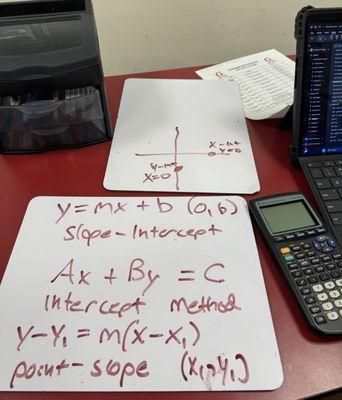 X-int
Y=0
Y-int
X=0
y=mx+b (0,b)
Slope-Intercept
Ax+By=C
Intercept Method
y-y₁=m(x-x₁)
point-slope (x₁,y₁)